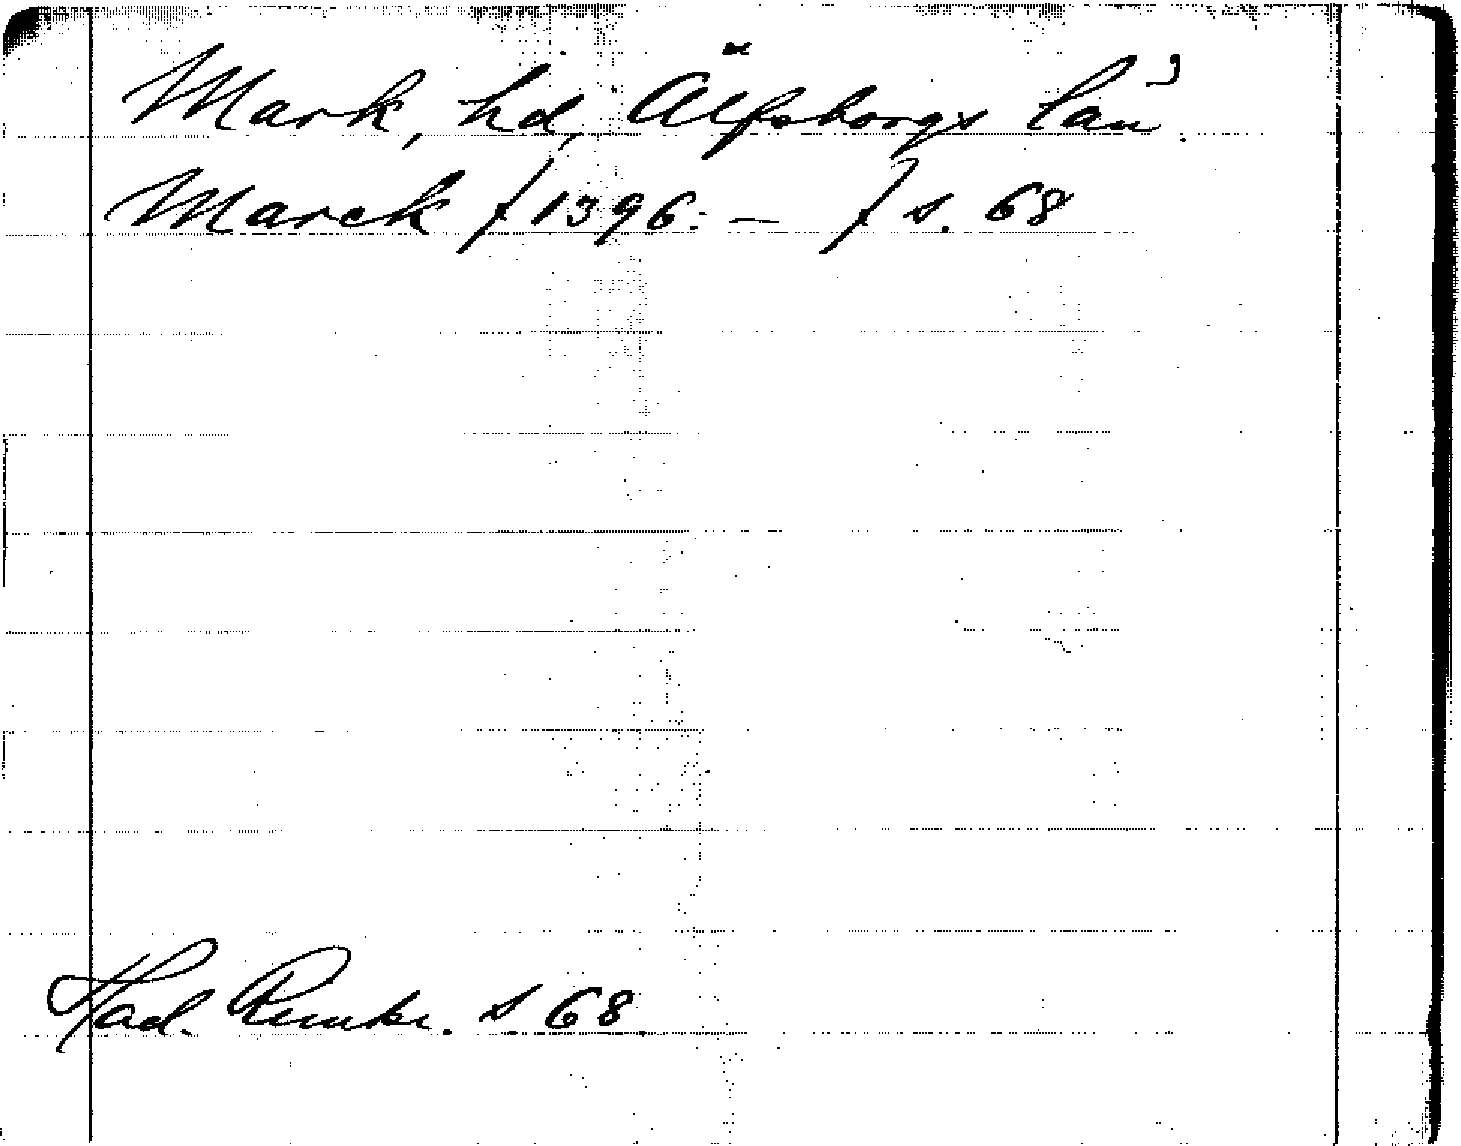 Mark, hd, Älfsborgs län.
Marck /1396. — / s. 68
Had. Rimkr. s. 68